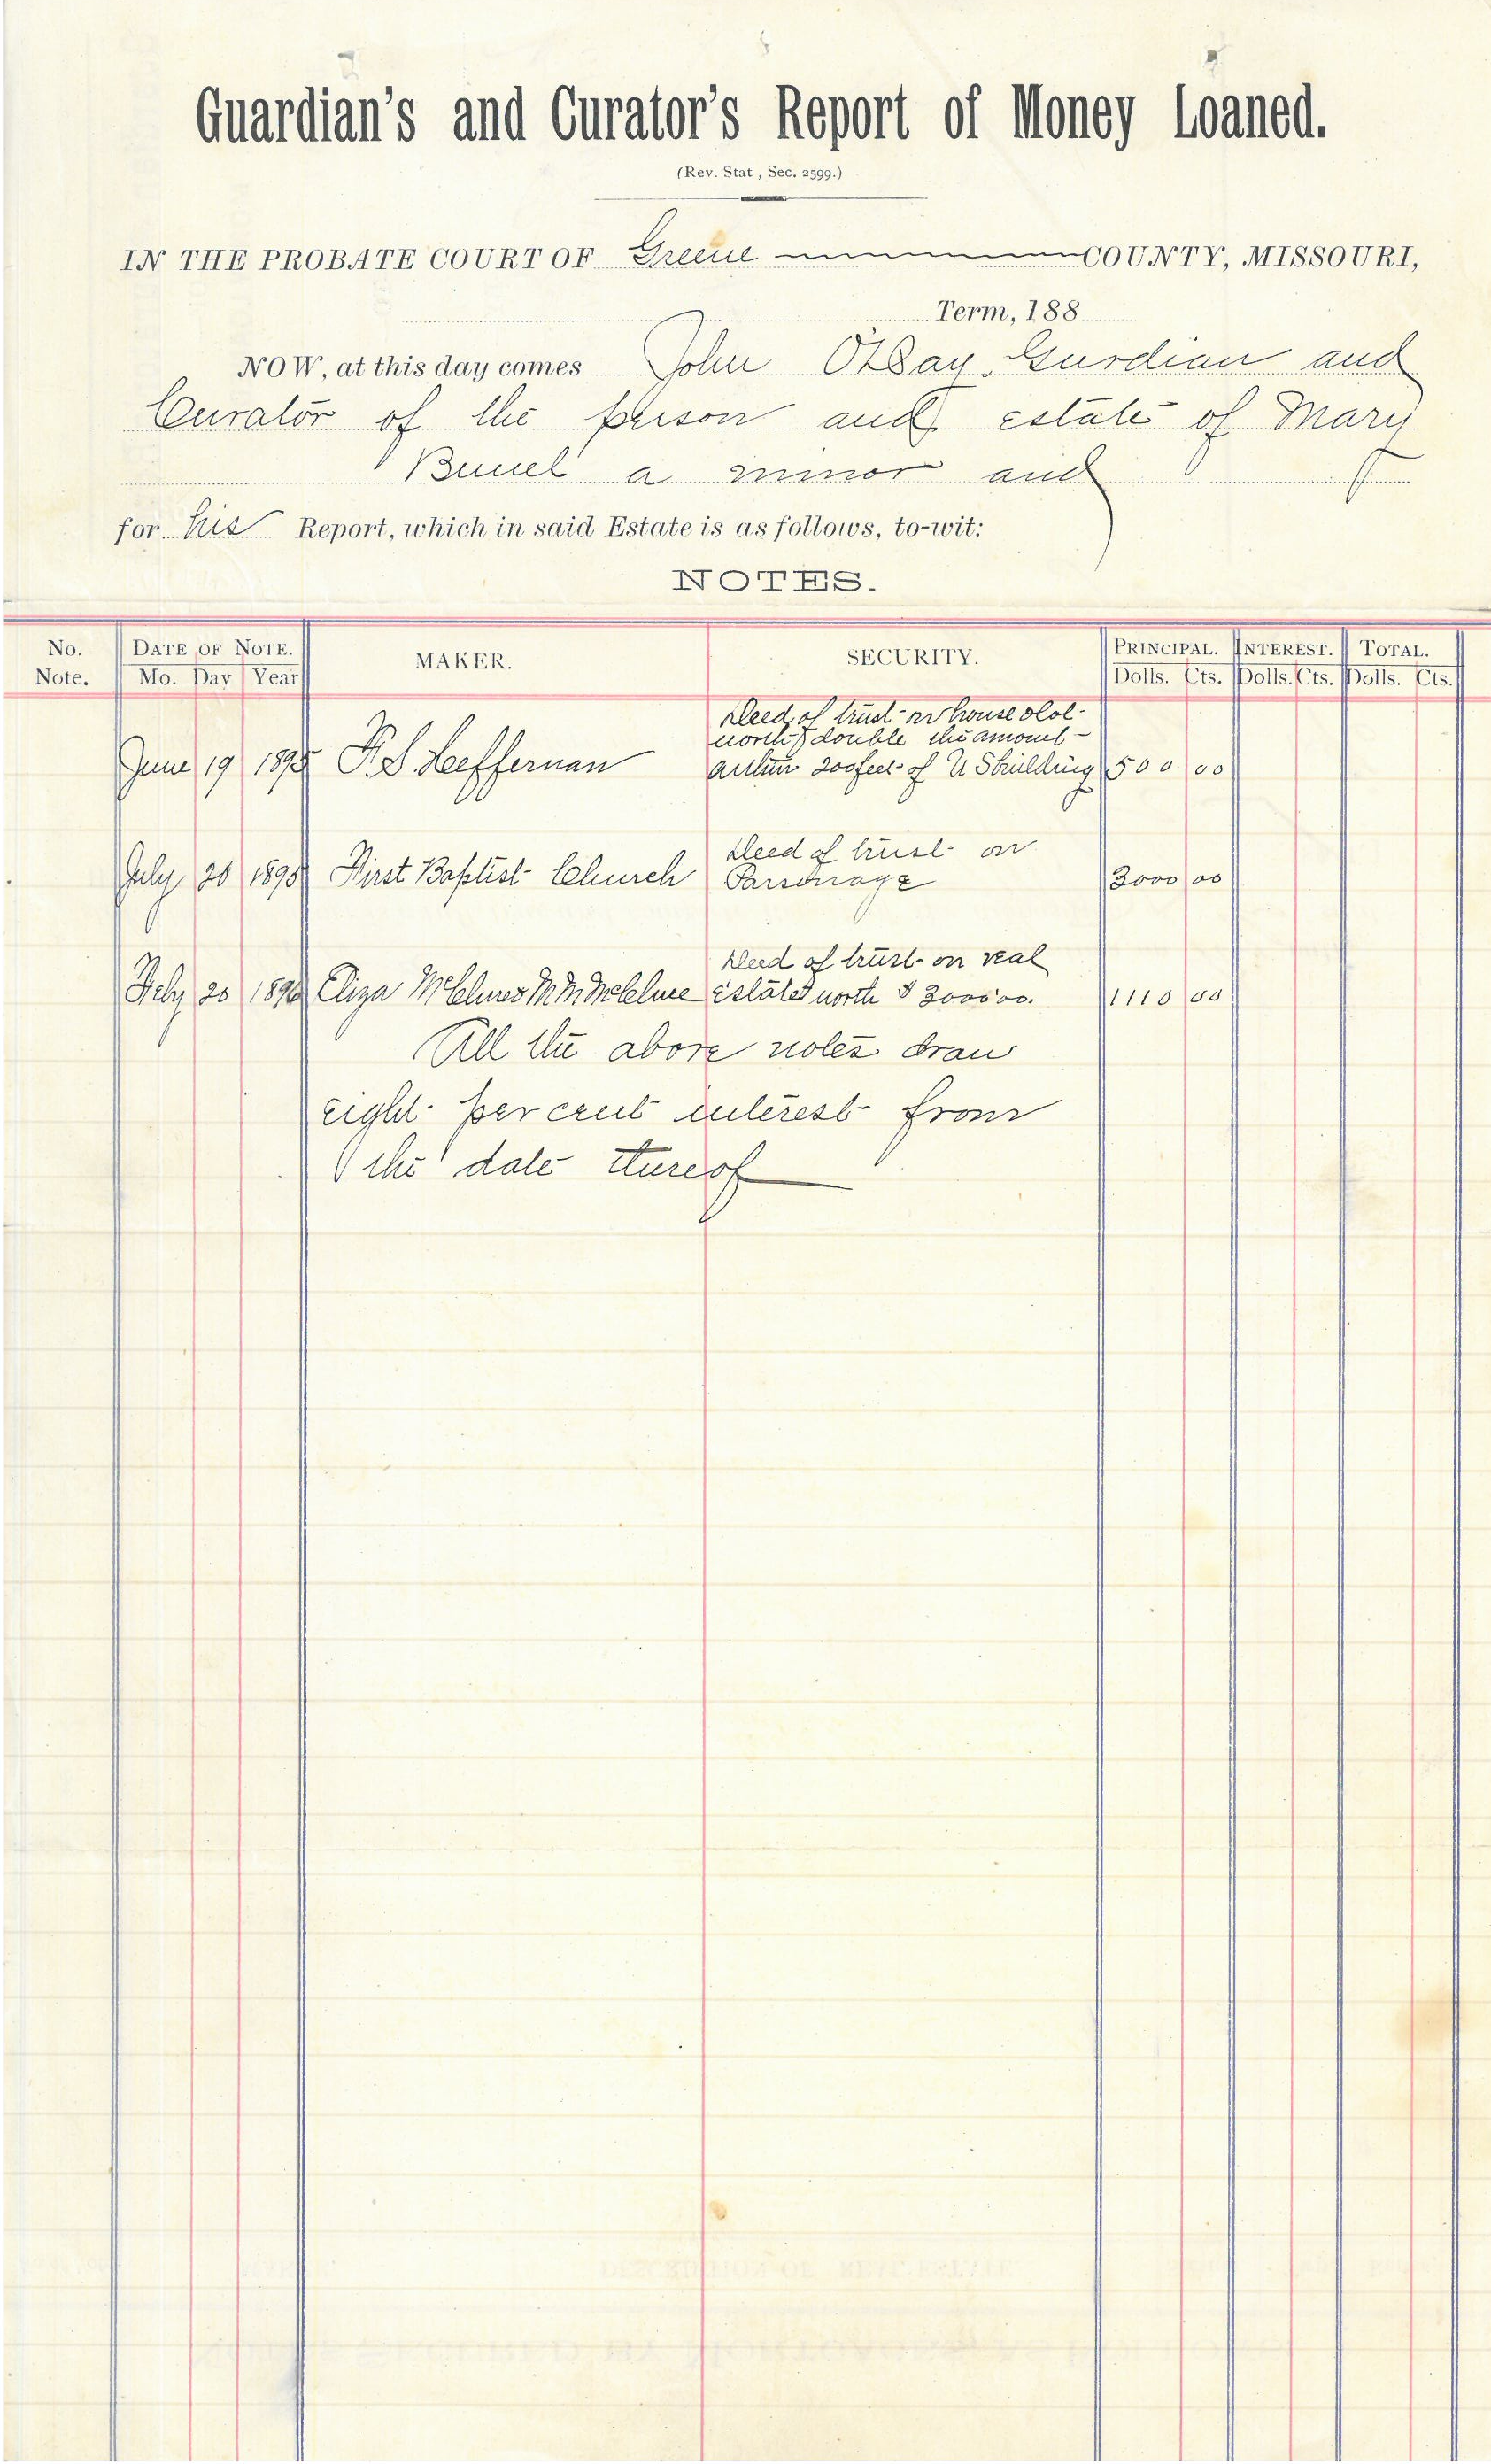 Guardian's and Curator's Report of Money Loaned.
(Rev. Stat, Sec. 2599.)
IN THE PROBATE COURT OF Greene COUNTY, MISSOURI,
Term, 188
NOW, at this day comes John O'Day Gurdian and
Curator of the person and estate of Mary
a minor and
for his Report, which in said Estate is as follows, to-wit:
NOTES.
No. Note. DATE OF NOTE. Mo. Day Year MAKER. SECURITY. PRINCIPAL. Dolls. Cts. INTEREST. Dolls. Cts. TOTAL. Dolls. Cts.
Deed of trust on house & lot
worth double the amount
June 19 1895 F. S. Heffernan within 200 feet of U S building 500 00
Deed of trust on
July 20 1895 First Baptist Church Parsonage 3000 00
Deed of trust on real
Feby 20 Eliza estate worth $ 3000.00. 1110 00
All the above notes draw
eight per cent interest from
the date thereof